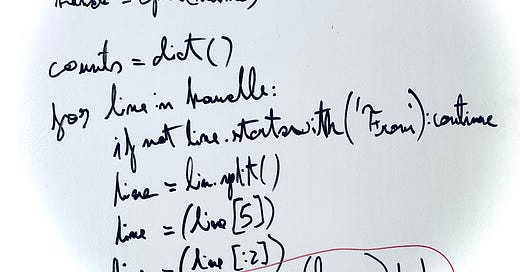 counts = dict()
for line in handle:
if not line.startswith('From'):continue
line = lin.split()
line = (line [5])
line = (line [:2])